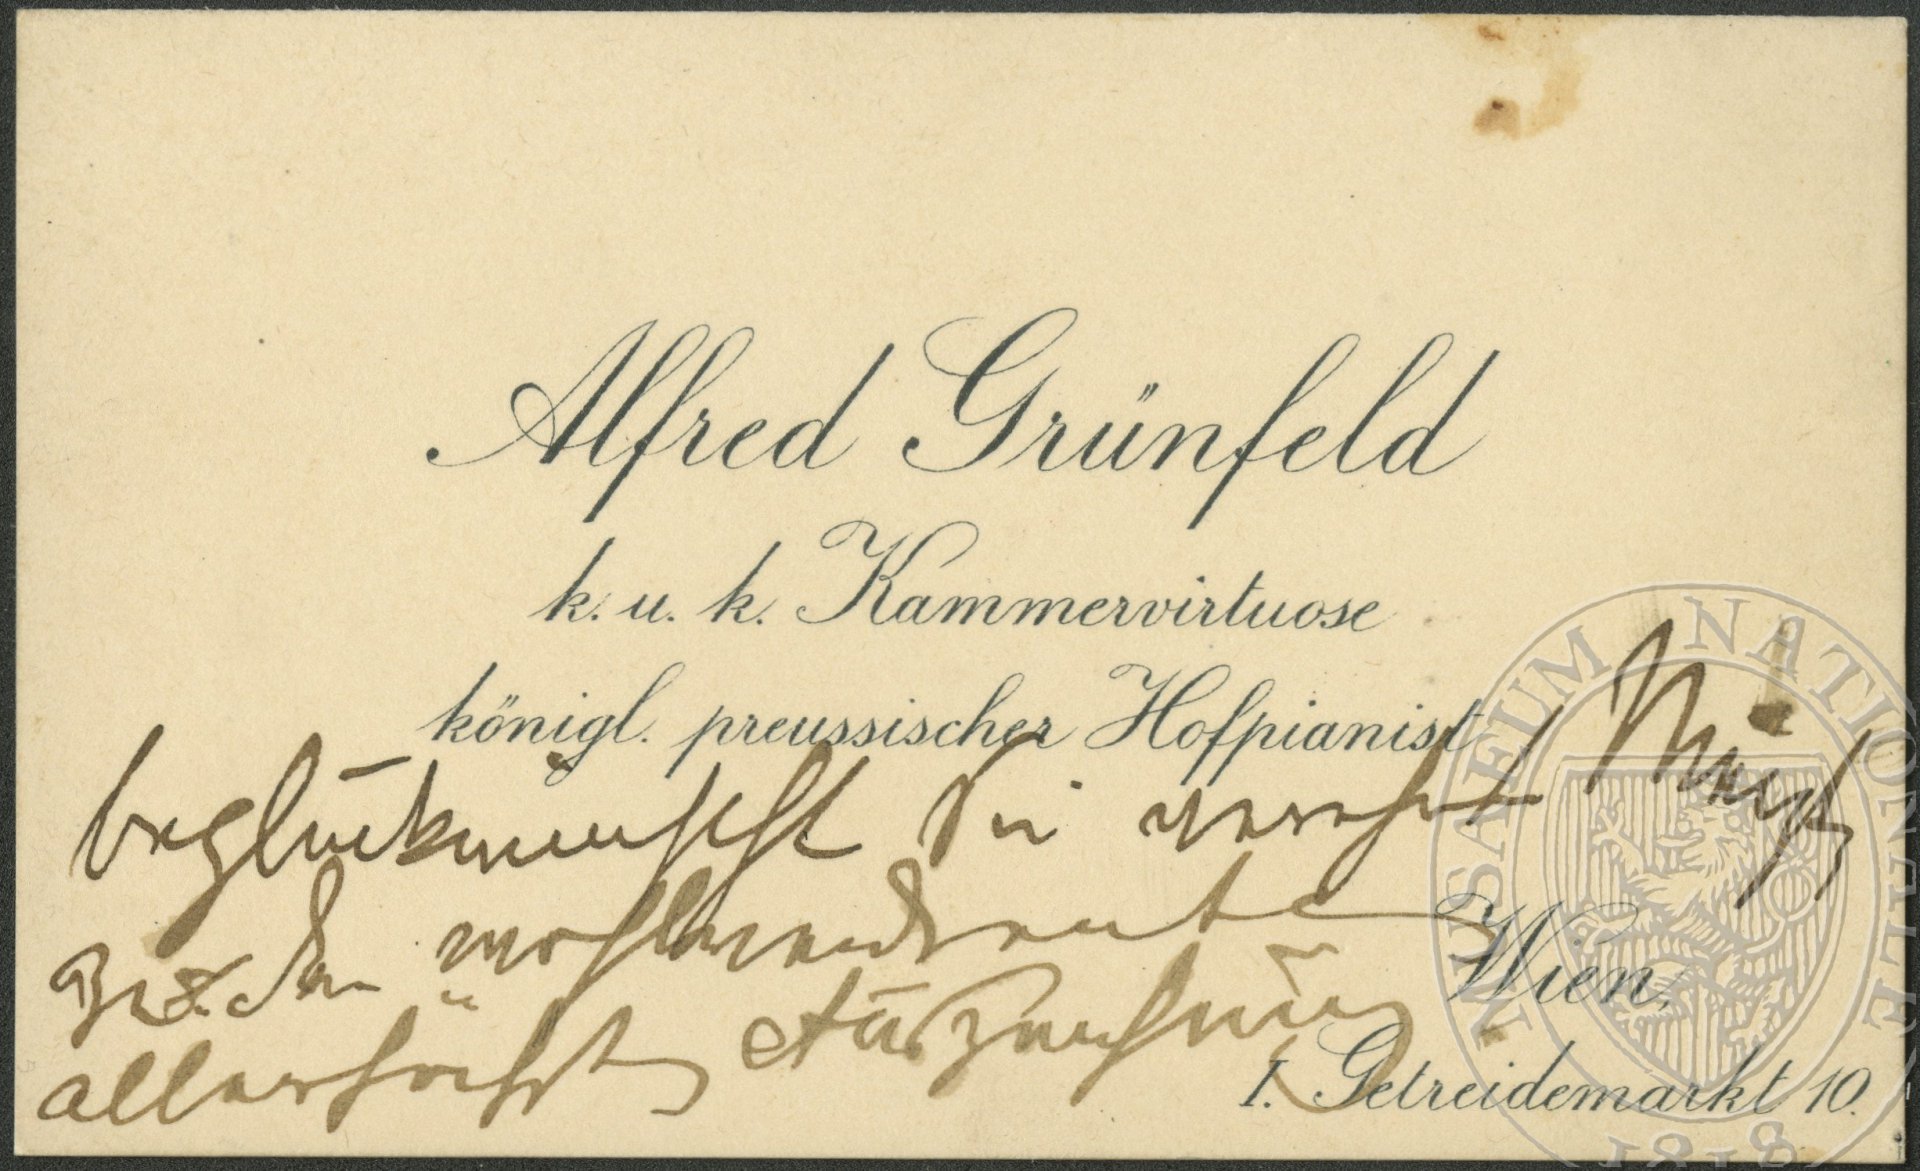 Alfred Grünfeld
k. u. k. Kammervirtuose
königl. preussischer Hofpianist
beglückwünscht Sie verehrt
zu der wohlverdienten
allerhöchsten Auszeichnung
Wien,
I. Getreidemarkt 10.
MUSAEUM NATIONALE
1818